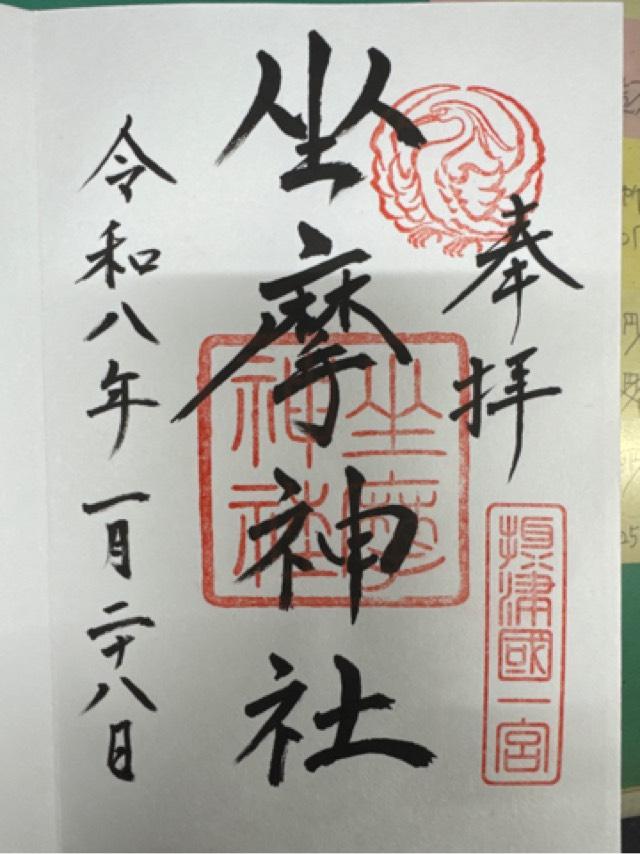 奉拝
摂津國一宮
坐摩神社
坐摩
神社
令和八年一月二十八日